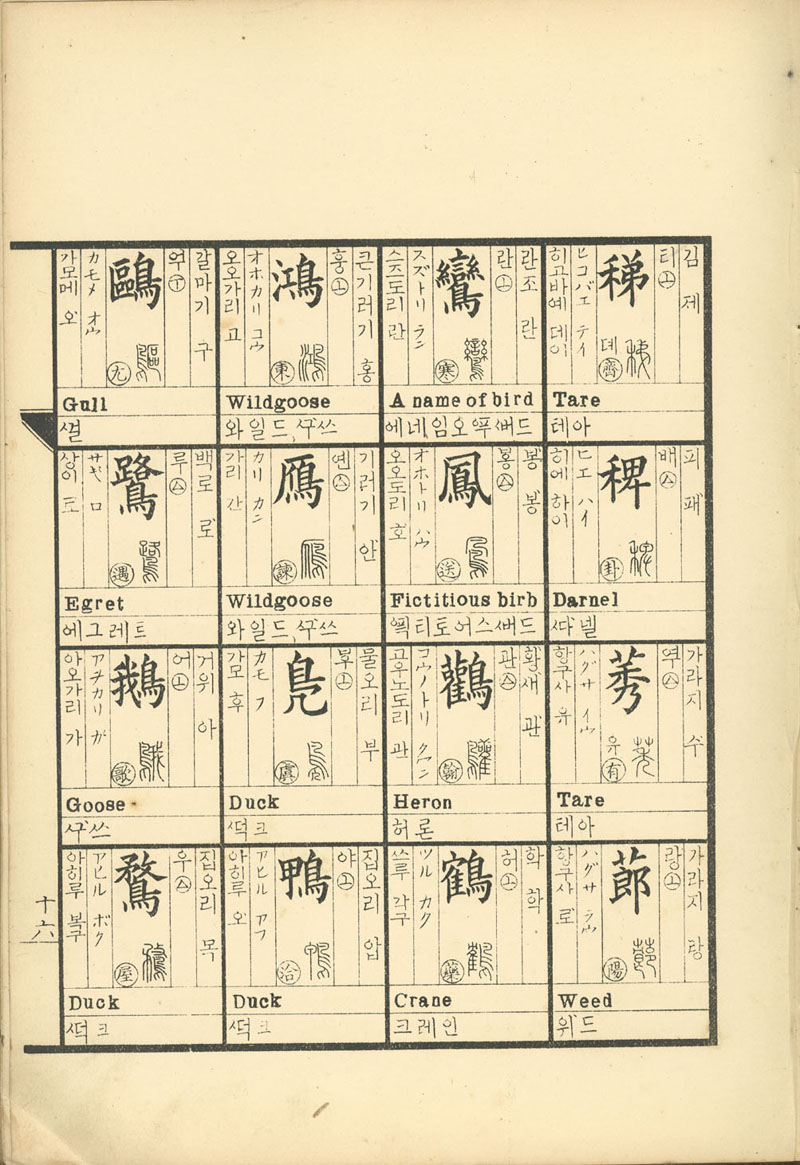 김 제
티 ㊤
稊
뎨 齊
ヒコバエ テイ
히고바예 데이
Tare
테아
피 패
배 ㊁
稗
卦
ヒエ ハイ
히에 하이
Darnel
가라지 수
莠
유 有
ハグサ イウ
Tare
테아
가라지 랑
랑 ㊤
蓈
陽
ハグサ ラウ
Weed
란조 란
란 ㊤
鸞
寒
スズトリ ラン
스즈도리 란
A name of bird
봉 봉
鳳
送
オホトリ ハウ
오오도리 호
Fictitious birb
황새 관
관
鸛
翰
コウノトリ クワン
고우노도리 관
Heron
허론
학 학
허 ㊤
鶴
藥
ツル カク
쓰루 각구
Crane
크레인
큰기러기 홍
훙 ㊤
鴻
東
オホカリ コウ
오오가리 고
Wildgoose
와일드 ᄭᅮ쓰
기러기 안
옌
鴈
諫
カリ カン
가리 간
Wildgoose
와일드 ᄭᅮ쓰
물오리 부
鳧
虞
カモ フ
가모 후
Duck
ᄯᅥᆨ크
집오리 압
야 ㊤
鴨
洽
アヒル アフ
아히루 오
Duck
ᄯᅥᆨ크
갈마기 구
鷗
尤
カモメ オウ
가모메 오
Gull
ᄭᅥᆯ
백로 로
루
鷺
遇
サギ ロ
상이 로
Egret
에그레트
거위 아
어 ㊤
鵝
歌
アヲカリ ガ
아오가리 가
Goose
ᄭᅮ쓰
집오리 목
우
鶩
屋
アヒル ボク
아히루 복구
Duck
ᄯᅥᆨ크
十六